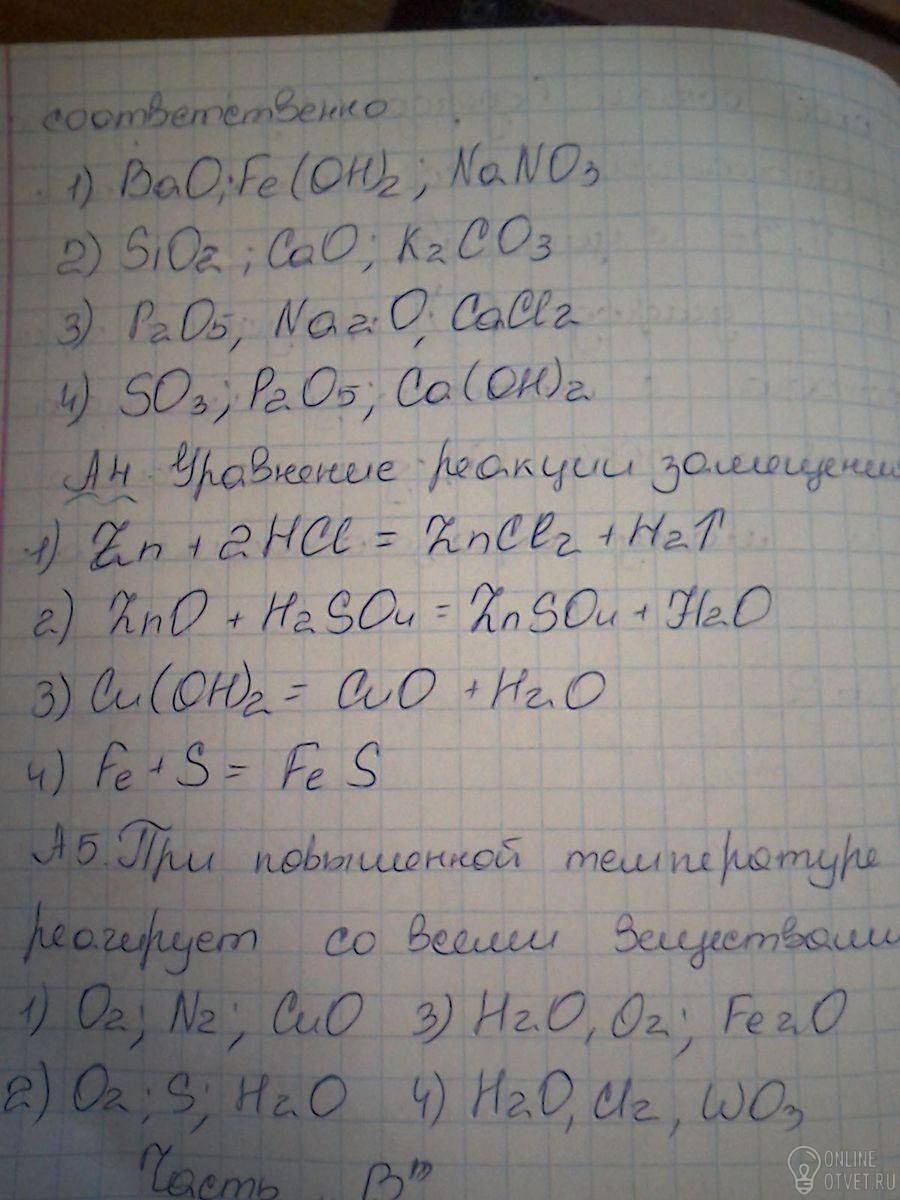 соответственно
1) BaO; Fe(OH)2; NaNO3
2) SiO2; CaO; K2CO3
3) P2O5, Na2O, CaCl2
4) SO3; P2O5; Ca(OH)2
А4 Уравнение реакции замещени
1) Zn + 2HCl = ZnCl2 + H2↑
2) ZnO + H2SO4 = ZnSO4 + H2O
3) Cu(OH)2 = CuO + H2O
4) Fe + S = FeS
А5. При повышенной температуре
реагирует со всеми веществами
1) O2; N2; CuO 3) H2O, O2; Fe2O
2) O2; S; H2O 4) H2O, Cl2, WO3
Часть "В"
ONLINE
OTVET.RU